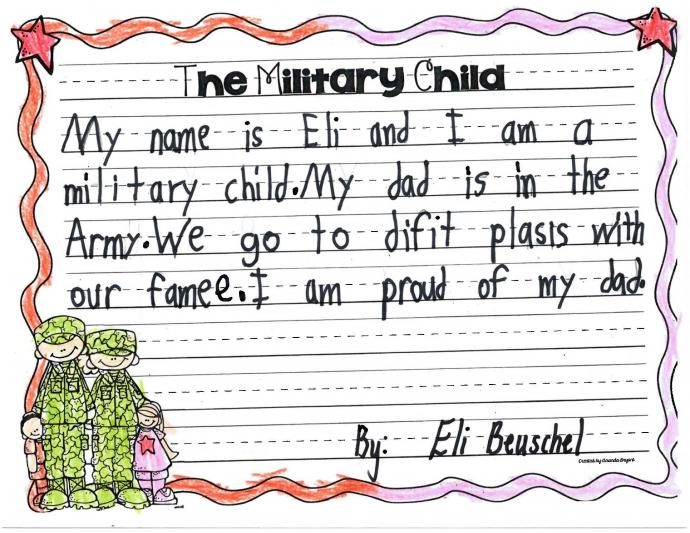 The Military Child
My name is Eli and I am a
military child. My dad is in the
Army. We go to difit plasis with
our famee. I am proud of my dad.
By: Eli Beuschel